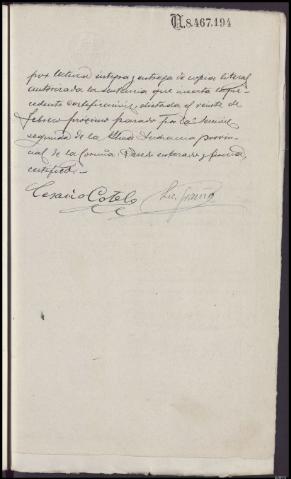 N.8.467.194
por lectura íntegra y entrega de copia literal
autorizada la sentencia que inserta la pre-
cedente certificación, dictada el veinte de
febrero próximo pasado por la Sección
segunda de la Audiencia provin-
cial de la Coruña. Queda enterado y firma,
certifico.=
Cesareo Cotelo Lic.